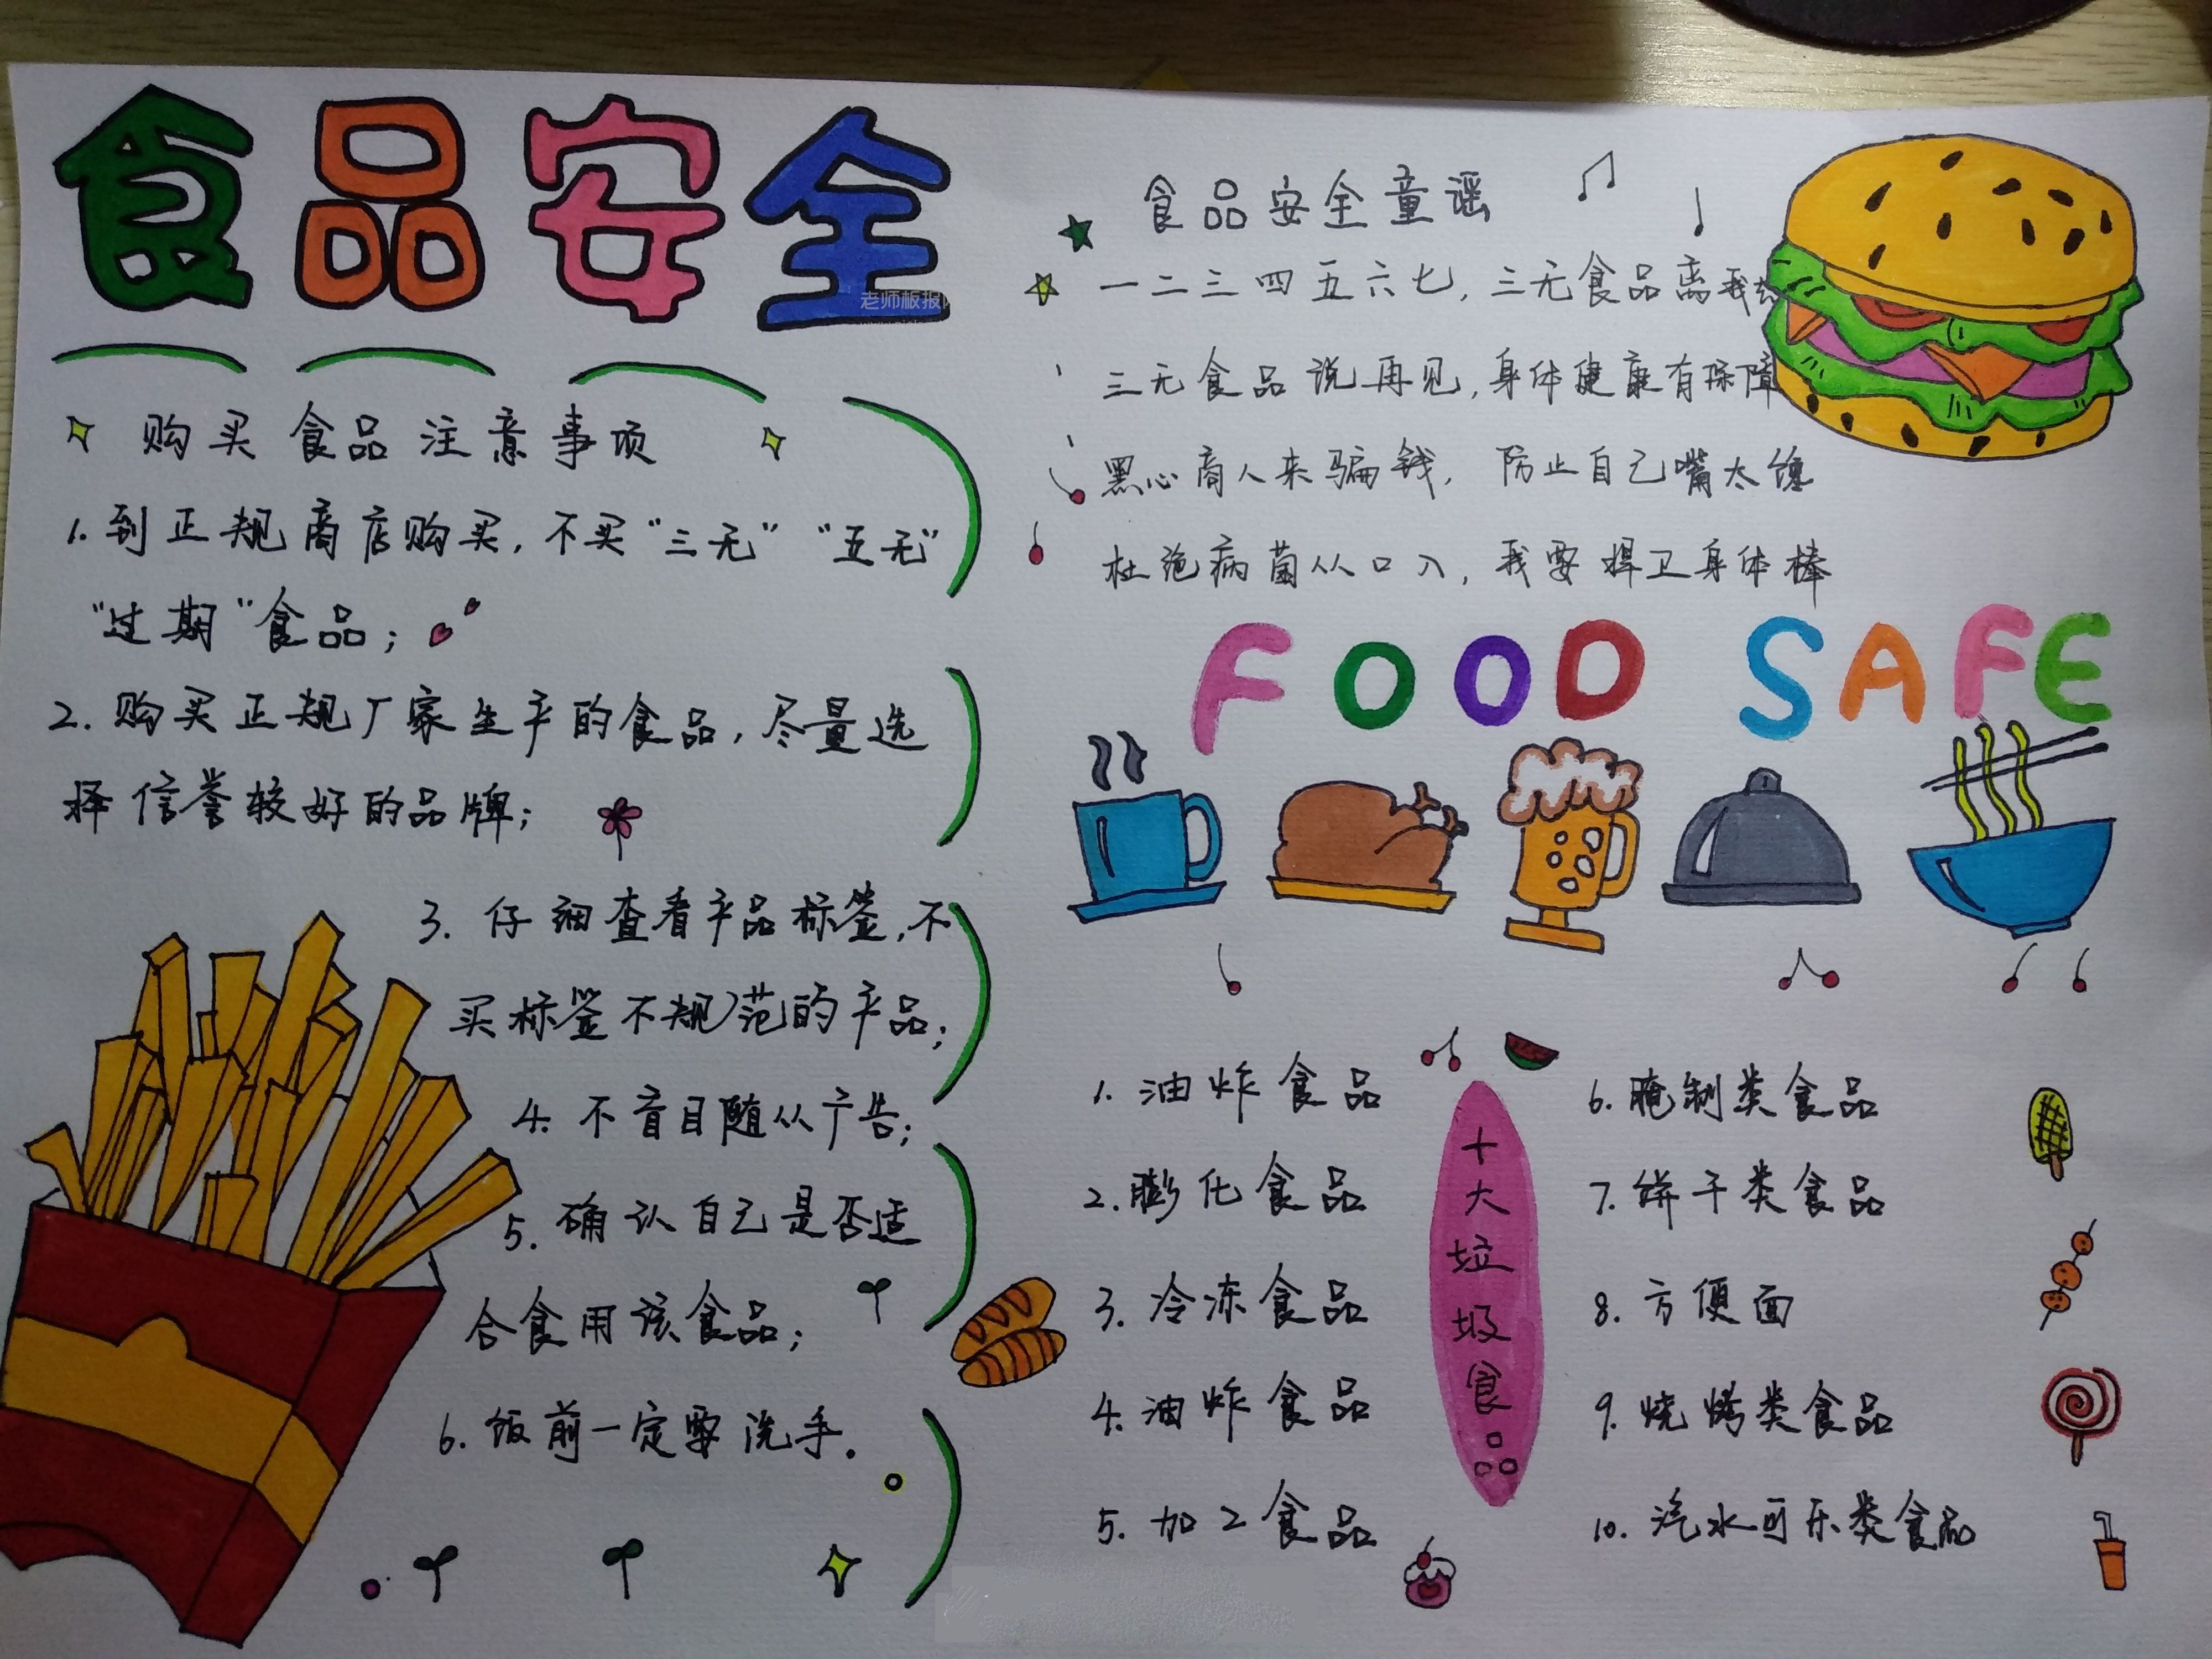 食品安全
老师板报
购买食品注意事项
1.到正规商店购买,不买“三无”“五无”
“过期”食品;
2.购买正规厂家生产的食品,尽量选
择信誉较好的品牌;
3.仔细查看产品标签,不
买标签不规范的产品;
4.不盲目随从广告;
5.确认自己是否适
合食用该食品;
6.饭前一定要洗手.
食品安全童谣
一二三四五六七,三无食品离我
三无食品说再见,身体健康有保障
黑心商人来骗钱,防止自己嘴太馋
杜绝病菌从口入,我要捍卫身体棒
FOOD SAFE
十大垃圾食品
1.油炸食品
2.膨化食品
3.冷冻食品
4.油炸食品
5.加工食品
6.腌制类食品
7.饼干类食品
8.方便面
9.烧烤类食品
10.汽水可乐类食品